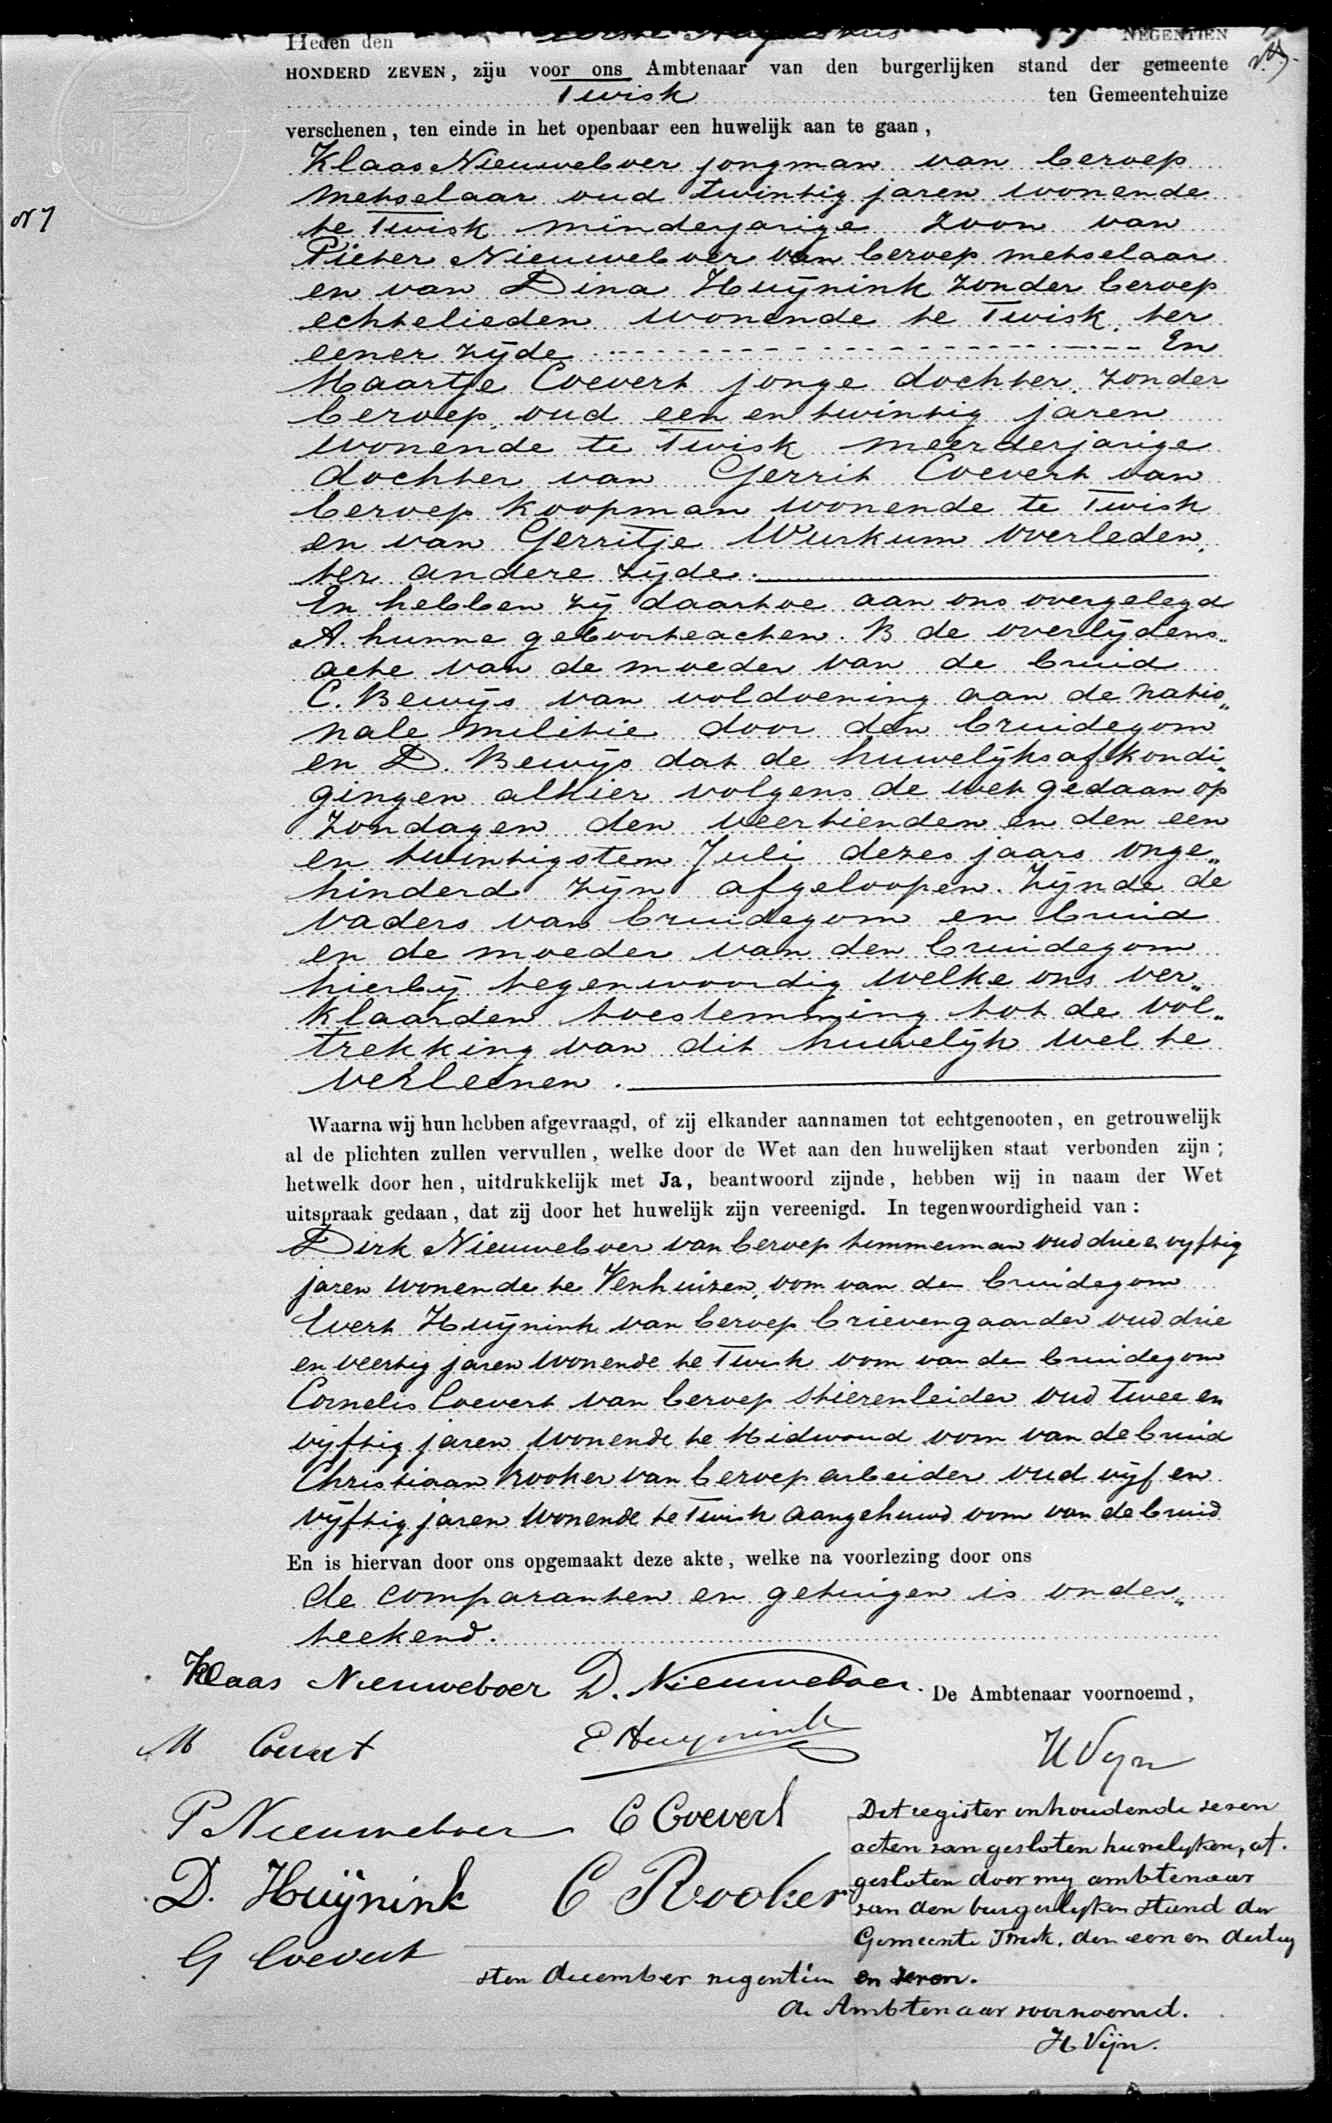 Heden den eerste Augustus NEGENTIEN
HONDERD ZEVEN, zijn voor ons Ambtenaar van den burgerlijken stand der gemeente
Twisk ten Gemeentehuize
verschenen, ten einde in het openbaar een huwelijk aan te gaan,
Klaas Nieuweboer jongman van beroep
metselaar oud twintig jaren wonende
No 7
te Twisk minderjarige zoon van
Pieter Nieuweboer van beroep metselaar
en van Dina Huijnink zonder beroep
echtelieden wonende te Twisk, ter
eener zijde En
Maartje Coevert jonge dochter, zonder
beroep, oud een en twintig jaren
wonende te Twisk meerderjarige
dochter van Gerrit Coevert van
beroep koopman wonende te Twisk
en van Gerritje Wurkum overleden,
ter andere zijde.
En hebben zij daartoe aan ons overgelegd
A. hunne geboorteacten. B de overlijdens„
acte van de moeder van de bruid
C. Bewijs van voldoening aan de natio„
nale militie door den bruidegom
en D. Bewijs dat de huwelijksafkondi„
gingen alhier volgens de wet gedaan op
zondagen den veertienden en den een
en twintigsten Juli dezes jaars onge„
hinderd zijn afgeloopen. Zijnde de
vaders van bruidegom en bruid
en de moeder van den bruidegom
hierbij tegenwoordig welke ons ver„
klaarden toestemming tot de vol„
trekking van dit huwelijk wel te
verleenen.
Waarna wij hun hebben afgevraagd, of zij elkander aannamen tot echtgenooten, en getrouwelijk
al de plichten zullen vervullen, welke door de Wet aan den huwelijken staat verbonden zijn;
hetwelk door hen, uitdrukkelijk met Ja, beantwoord zijnde, hebben wij in naam der Wet
uitspraak gedaan, dat zij door het huwelijk zijn vereenigd. In tegenwoordigheid van:
Dirk Nieuweboer van beroep timmerman oud drie en vyftig
jaren wonende te Venhuizen, oom van den bruidegom
Evert Huijnink van beroep brievengaarder oud drie
en veertig jaren wonende te Twisk oom van den bruidegom
Cornelis Coevert van beroep stierenleider oud twee en
vijftig jaren wonende te Midwoud oom van de bruid
Christiaan Rooker van beroep arbeider oud vijf en
vijftig jaren wonende te Twisk aangehuwd oom van de bruid
En is hiervan door ons opgemaakt deze akte, welke na voorlezing door ons
de comparanten en getuigen is onder„
teekend.
Klaas Nieuweboer D. Nieuweboer. De Ambtenaar voornoemd,
M Coevert E Huijnink H Vijn
P Nieuweboer C Coevert
D. Huijnink C Rooker
G Coevert
Dit register inhoudende zeven
acten van gesloten huwelyken, af.
gesloten door my ambtenaar
van den burgerlyken stand der
Gemeente Twisk, den een en dertig
sten december negentien en zeven.
de Ambtenaar voornoemd.
H Vijn.